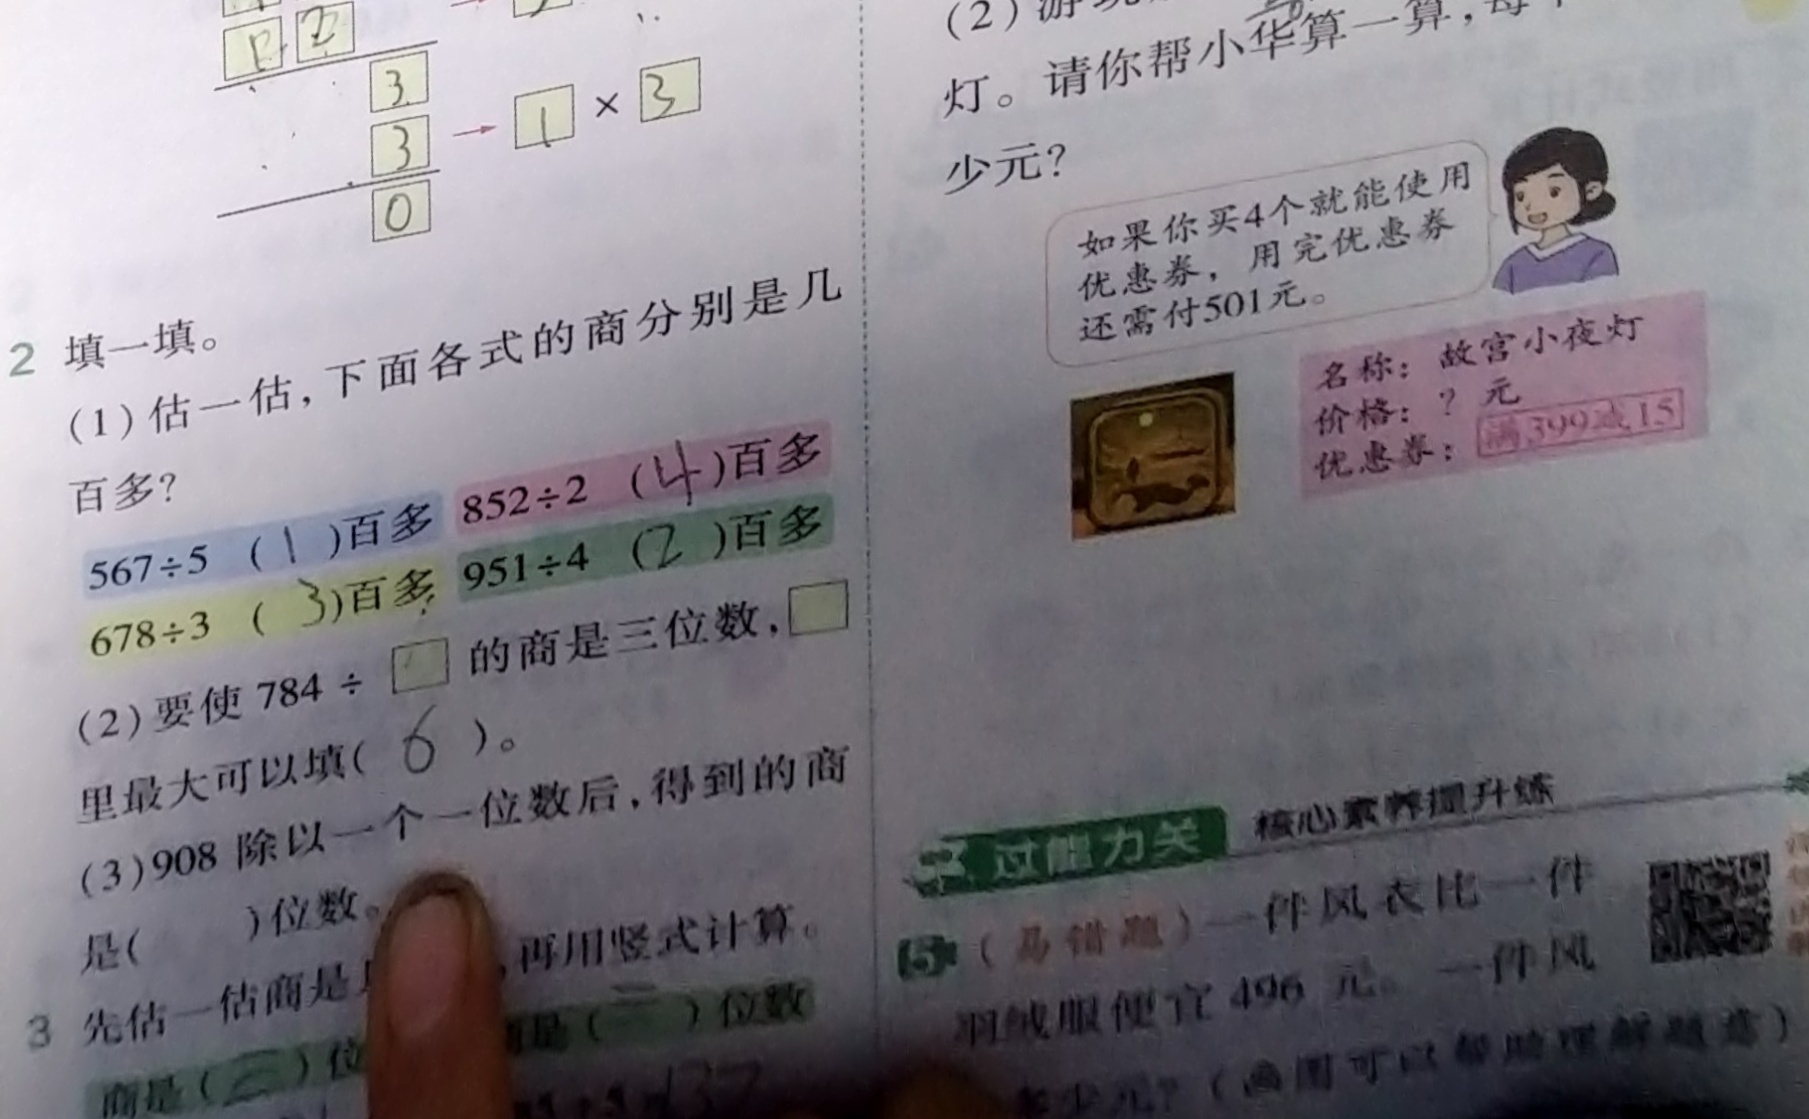 2
3
3 → 1 × 3
0
2 填一填。
(1)估一估，下面各式的商分别是几
百多？
567÷5 (1)百多 852÷2 (4)百多
678÷3 (3)百多 951÷4 (2)百多
(2)要使 784÷□的商是三位数，□
里最大可以填(6)。
(3)908 除以一个一位数后，得到的商
是( )位数。
3 先估一估商是 再用竖式计算。
商是(三)位 是(三)位数
(2)
灯。请你帮小华算一算，每
少元？
如果你买4个就能使用
优惠券，用完优惠券
还需付501元。
名称：故宫小夜灯
价格：？元
优惠券：满399减15
过能力关 核心素养提升练
5 (易错题)一件风衣比一件
羽绒服便宜 496 元。一件风
多少元？(画图可以帮助理解题意)